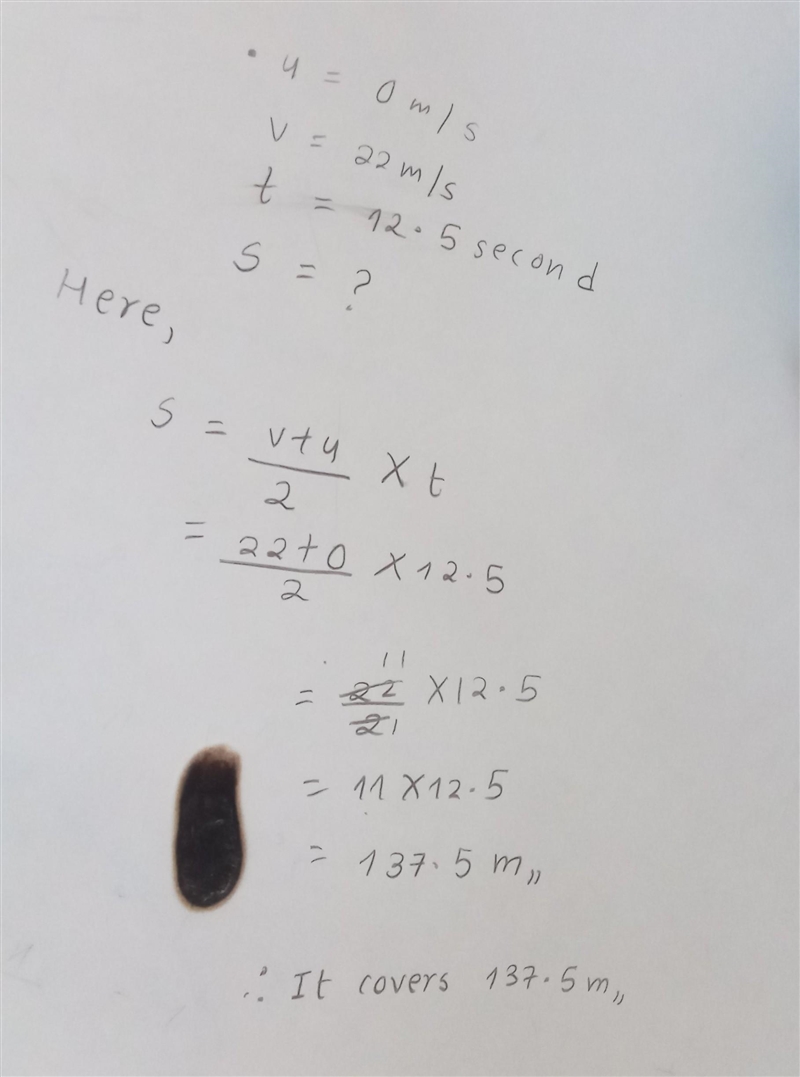 • u = 0 m/s
v = 22 m/s
t = 12.5 second
S = ?
Here,
S = v+u/2 X t
= 22+0/2 X 12.5
= 22/2 X 12.5 11 1
= 11 X 12.5
= 137.5 m,,
∴ It covers 137.5 m,,